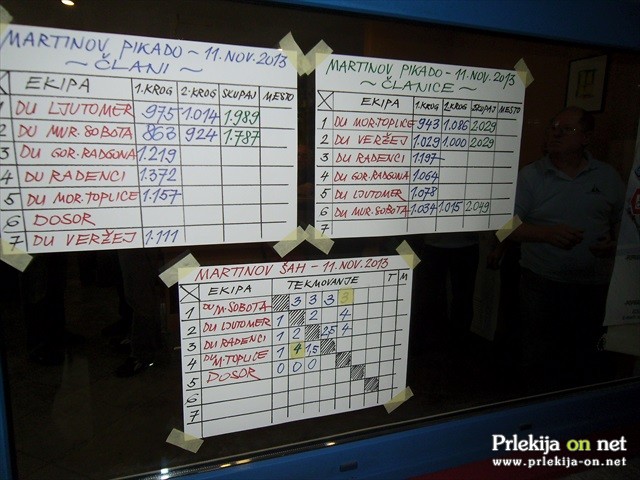 MARTINOV PIKADO - 11.NOV.2013
~ ČLANI ~
X EKIPA 1.KROG 2.KROG SKUPAJ MESTO
1 DU LJUTOMER 975 1.014 1.989
2 DU MUR.SOBOTA 863 924 1.787
3 DU GOR.RADGONA 1.219
4 DU RADENCI 1.372
5 DU MOR.TOPLICE 1.157
6 DOSOR
7 DU VERŽEJ 1.111
MARTINOV PIKADO - 11.NOV.2013
~ ČLANICE ~
X EKIPA 1.KROG 2.KROG SKUPAJ MESTO
1 DU MOR.TOPLICE 943 1.086 2.029
2 DU VERŽEJ 1.029 1.000 2.029
3 DU RADENCI 1.197
4 DU GOR.RADGONA 1.064
5 DU LJUTOMER 1.078
6 DU MUR.SOBOTA 1.034 1.015 2.049
7
MARTINOV ŠAH - 11.NOV.2013
X EKIPA TEKMOVANJE T M
1 DU M.SOBOTA 3 3 3 3
2 DU LJUTOMER 1 2 4
3 DU RADENCI 1 2 2,5 4
4 DU M.TOPLICE 1 4 1,5
5 DOSOR 0 0 0
6
7
Prlekija on net
www.prlekija-on.net